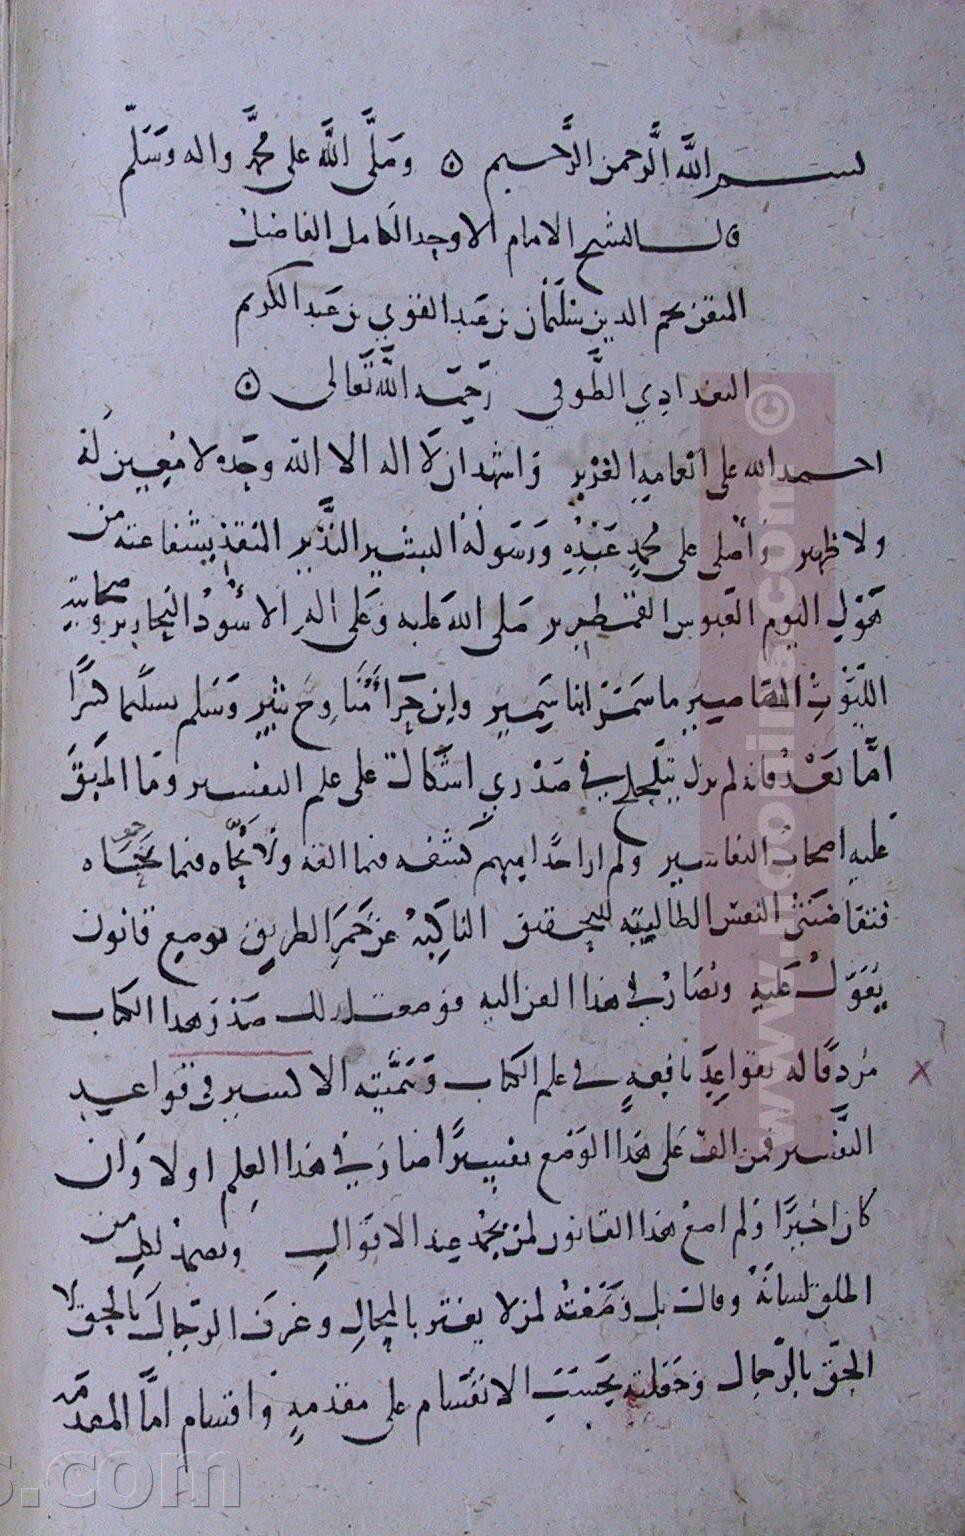 بسم الله الرحمن الرحيم ۞ وصلَّى اللَّه على محمَّد واله وَسَلَّم
قال الشيخ الامام الاوحد الكامل الفاضل
المتقن نجم الدين سُلَيْمان بن عَبد القوي بن عَبد الكريم
البغدادي الطَّوفي رَحِمَه اللَّه تَعالى ۞
احمد الله على انعامه الغزير وَاشهد ان لَا اله الا الله وحده لا معين لهُ
ولا ظهير وَأصلي على محمدٍ عَبْدِهِ وَرَسَولهُ البشير النَّذير المنقذ بشفاعته من
هَوْلِ اليَوم العَبوس القمطرير صَلى الله عَليه وَعَلى الهِ الاسُودُ النحارير وصحابته
اللّيُوثِ ما سَمَرَ ابنا سَمِير وان حِرَا وثبير وَسَلم تسلِيما كثيرًا
امَّا بَعْدُ فانه لم يزل يتلجلج في صَدْري اشكال على علم التفسير وما اطبَقَ
عَليهِ اصحاب التفاسير ولم ار احدًا منهم كشفه فيما الفه وَلا نحّاه فيما نحاه
فتقاضَتني النفس الطالبة للتحقيق الناكِبة عن جَمرَ الطريق بوضع قانون
يُعَوّلُ عَليهِ ويُصَارُ في هذا الفن اليه فوضعت لذلك صَدْرَ هذا الكتاب
مُردفًا له بقواعِدَ نافِعهٍ في علم الكتاب وَسَمَّيته الاكسير في قواعد
التَّفسير فمن الف عَلى هَذا الوَضع تفسيرًا صَارَ في هَذا العِلم اولا وَان
كان اخيرًا وَلم اضعْ هَذا القانون لمن يجمُد عِند الاقوال ويصمد لكل من
اطلق لسانهُ وقالَ بل وَضَعْتُه لمن لا يغتر بالمحال وعَرَفَ الرّجالَ بالحق لا
الحقَّ بالرّجال وَجَعلته بحَسَبِ الانقسام على مقدمةٍ وَاقسام امّا المقدمة
www.
©
s.com